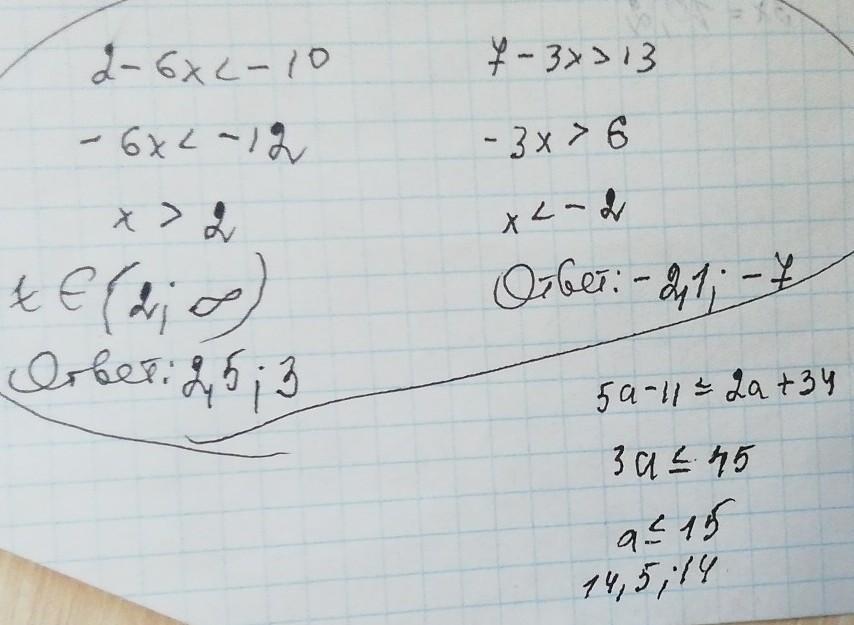 2 - 6x < - 10
- 6x < - 12
x > 2
x ∈ (2; ∞)
Ответ: 2,5; 3
7 - 3x > 13
- 3x > 6
x < - 2
Ответ: - 2,1; - 7
5a - 11 ≤ 2a + 34
3a ≤ 45
a ≤ 15
14,5; 14